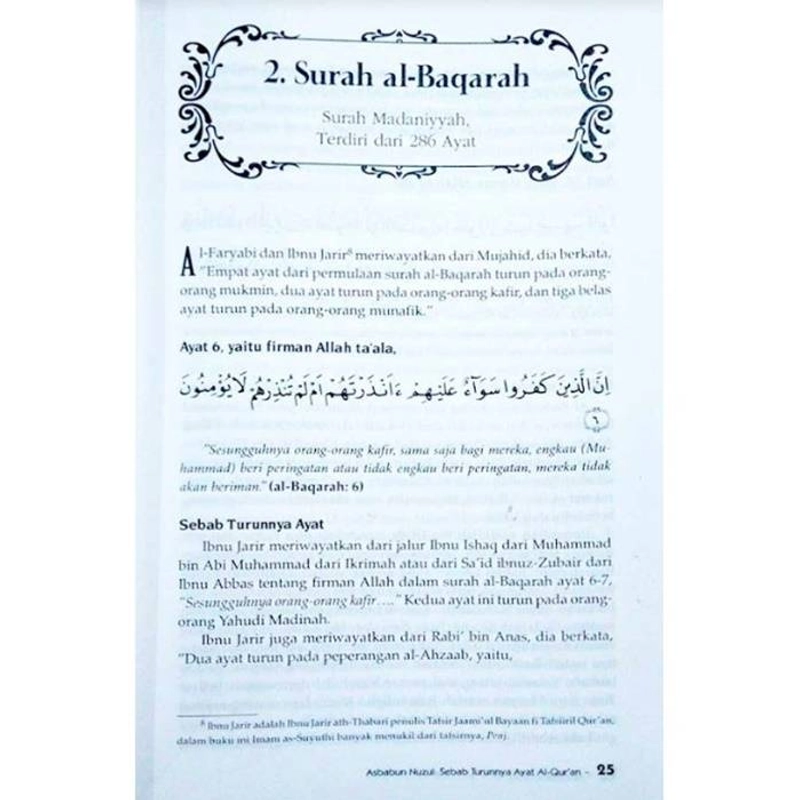 2. Surah al-Baqarah
Surah Madaniyyah,
Terdiri dari 286 Ayat
Al-Faryabi dan Ibnu Jarir⁸ meriwayatkan dari Mujahid, dia berkata,
"Empat ayat dari permulaan surah al-Baqarah turun pada orang-
orang mukmin, dua ayat turun pada orang-orang kafir, dan tiga belas
ayat turun pada orang-orang munafik."
Ayat 6, yaitu firman Allah ta'ala,
اِنَّ الَّذِيْنَ كَفَرُوْا سَوَآءٌ عَلَيْهِمْ ءَاَنْذَرْتَهُمْ اَمْ لَمْ تُنْذِرْهُمْ لَا يُؤْمِنُوْنَ
٦
"Sesungguhnya orang-orang kafir, sama saja bagi mereka, engkau (Mu-
hammad) beri peringatan atau tidak engkau beri peringatan, mereka tidak
akan beriman." (al-Baqarah: 6)
Sebab Turunnya Ayat
Ibnu Jarir meriwayatkan dari jalur Ibnu Ishaq dari Muhammad
bin Abi Muhammad dari Ikrimah atau dari Sa'id ibnuz-Zubair dari
Ibnu Abbas tentang firman Allah dalam surah al-Baqarah ayat 6-7,
"Sesungguhnya orang-orang kafir...." Kedua ayat ini turun pada orang-
orang Yahudi Madinah.
Ibnu Jarir juga meriwayatkan dari Rabi' bin Anas, dia berkata,
"Dua ayat turun pada peperangan al-Ahzaab, yaitu,
⁸ Ibnu Jarir adalah Ibnu Jarir ath-Thabari penulis Tafsir Jaami'ul Bayaan fi Tafsiiril Qur'an,
dalam buku ini Imam as-Suyuthi banyak menukil dari tafsirnya, Penj.
Asbabun Nuzul: Sebab Turunnya Ayat Al-Qur'an - 25